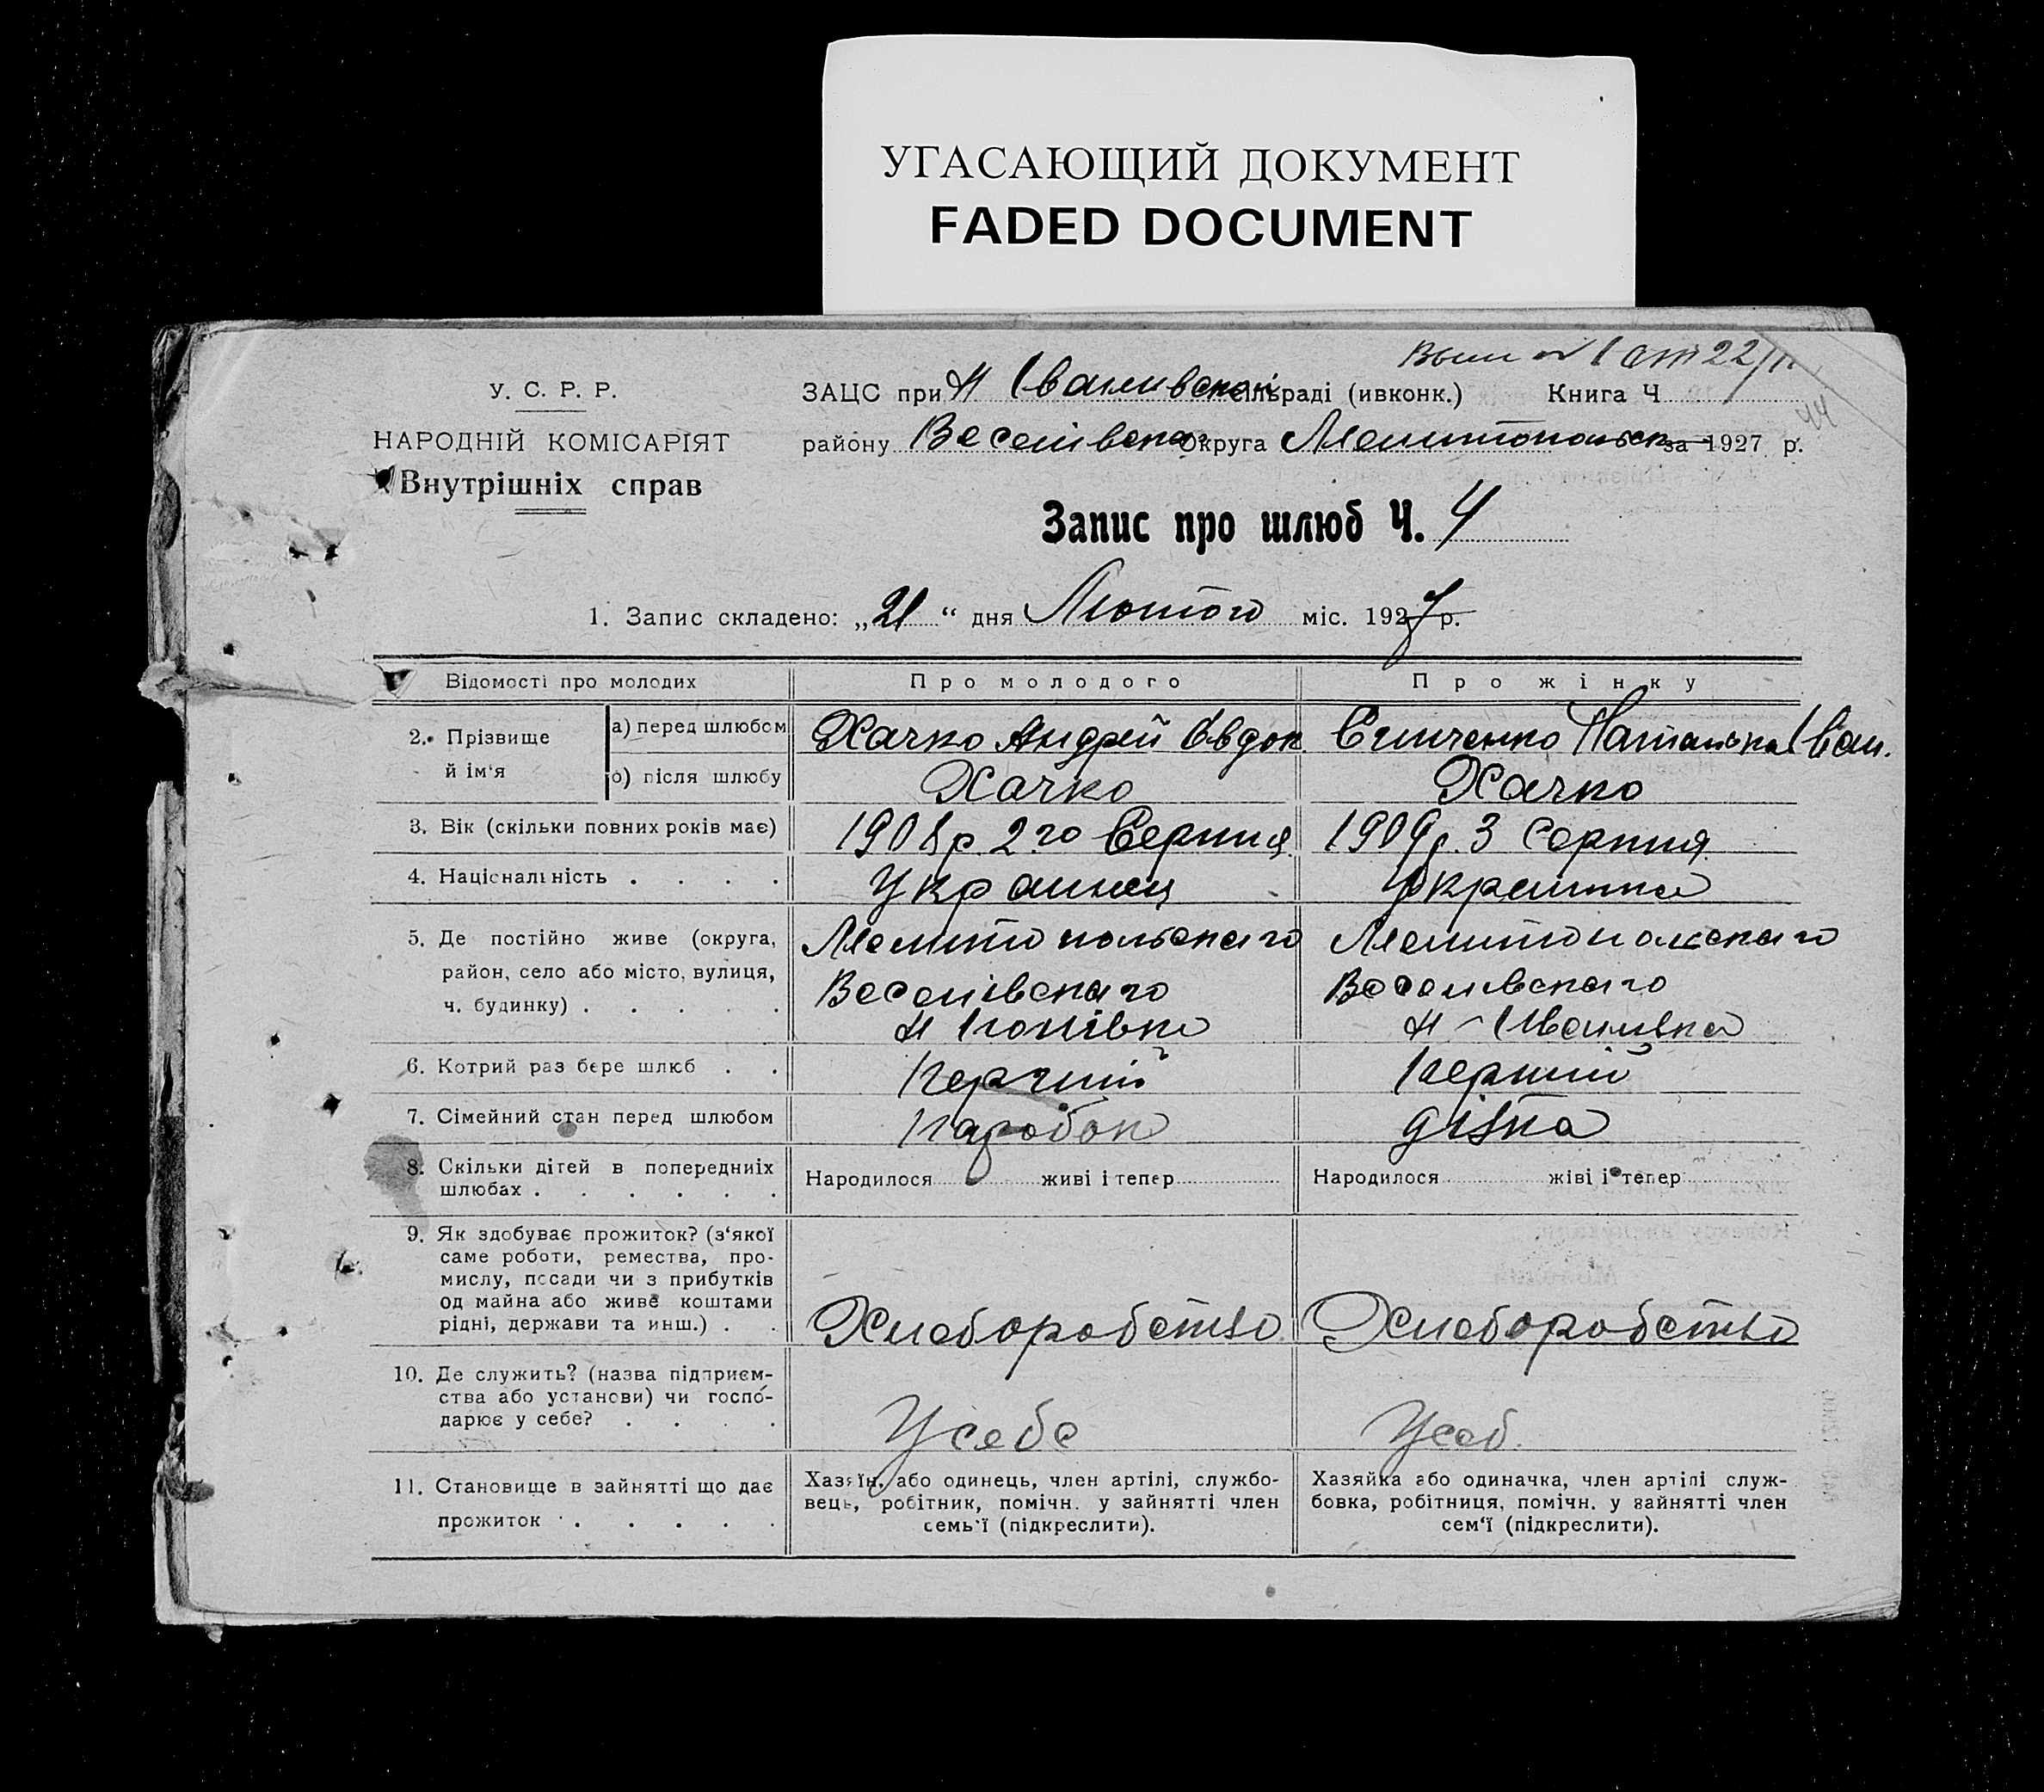 УГАСАЮЩИЙ ДОКУМЕНТ
FADED DOCUMENT
от 22/II
44
У. С. Р. Р.
НАРОДНІЙ КОМІСАРІЯТ
Внутрішніх справ
ЗАЦС при Н Іванивской сільраді (ивконк.) Книга Ч
району Веселівська Округа Мелитопольск за 1927 р.
Запис про шлюб Ч. 4
1. Запис складено: „21“ дня Лютого міс. 1927 р.
Відомості про молодих Про молодого Про жінку
2. Прізвище й ім'я
а) перед шлюбом Хачко Андрей Евдок. Наталька Іван.
б) після шлюбу Хачко Хачко
3. Вік (скільки повних років має) 1908 р. 2го Серпня 1909 р. 3 Серпня
4. Національність . . . . Украинец Украинка
5. Де постійно живе (округа, Мелитопольскаго Мелитопольскаго
район, село або місто, вулиця, Веселівскаго Веселивскаго
ч. будинку) . . . . . Н Н-Иванивка
6. Котрий раз бере шлюб . . Перший Перший
7. Сімейний стан перед шлюбом Паробок дівка
8. Скільки дітей в попередниіх Народилося живі і тепер Народилося жіві і тепер
шлюбах . . . . . .
9. Як здобуває прожиток? (з'якої
саме роботи, ремества, про-
мислу, посади чи з прибутків
од майна або живе коштами
рідні, держави та инш.) . . Хлеборобство Хлеборобство
10. Де служить? (назва підприєм-
ства або установи) чи госпо-
дарює у себе? . . . . У себе У себ.
11. Становище в зайнятті що дає
прожиток . . . . .
Хазяїн, або одинець, член артілі, службо-
вець, робітник, помічн. у зайнятті член
семь'ї (підкреслити).
Хазяйка або одиначка, член артілі служ-
бовка, робітниця, помічн. у зайнятті член
сем'ї (підкреслити).